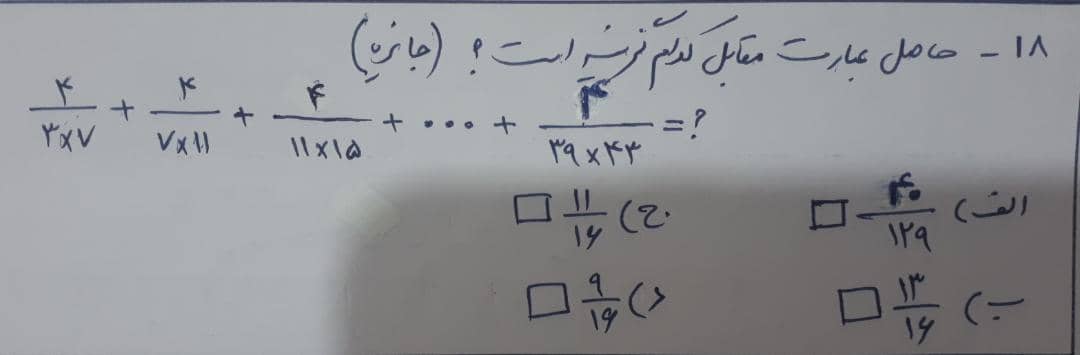 ۱۸ - حاصل عبارت مقابل کدام گزینه است ؟ (جایزه)
۴/۳×۷ + ۴/۷×۱۱ + ۴/۱۱×۱۵ + ... + ۴/۳۹×۴۳ = ?
الف) ۴۰/۱۲۹ □ ج) ۱۱/۱۶ □
ب) ۱۳/۱۶ □ د) ۹/۱۶ □